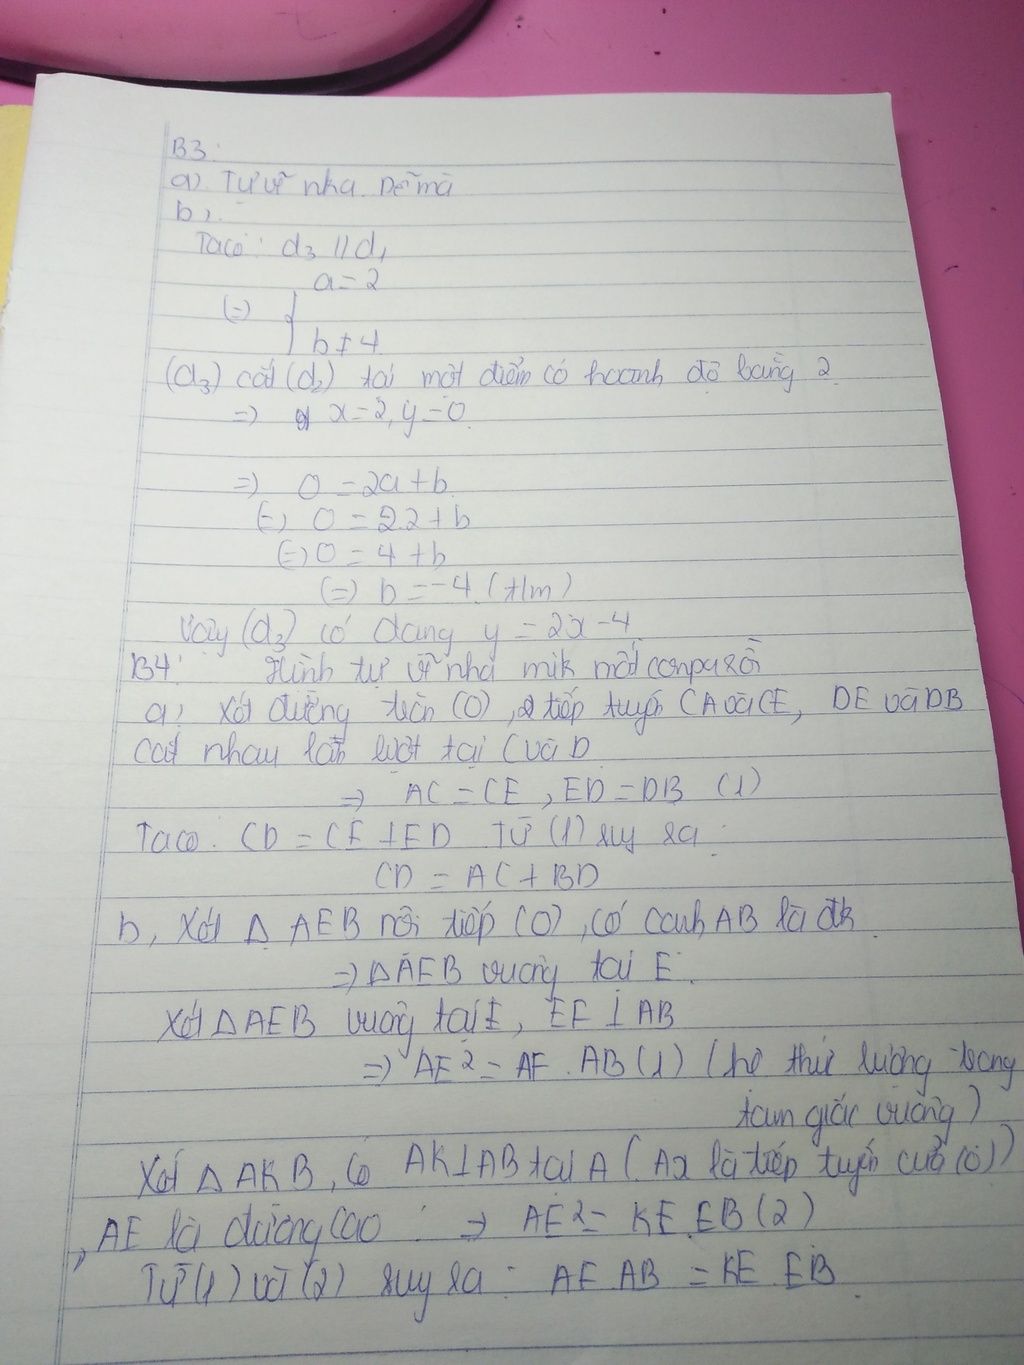 B3:
a) Tự vẽ nha. Dễ mà
b,.
Ta có: d3 // d1
a = 2
(=) {
b ≠ 4
(d3) cắt (d2) tại một điểm có hoành độ bằng 2
=> x = 2, y = 0
=> 0 = 2a + b
(=) 0 = 2.2 + b
(=) 0 = 4 + b
(=) b = -4 (t/m)
Vậy (d3) có dạng y = 2x - 4
B4: Hình tự vẽ nha mik mất compa rồi
a, Xét đường tròn (O), 2 tiếp tuyến CA và CE, DE và DB
cắt nhau lần lượt tại C và D
=> AC = CE, ED = DB (1)
Ta có: CD = CE + ED Từ (1) suy ra
CD = AC + BD
b, Xét Δ AEB nội tiếp (O), có cạnh AB là đk
=> Δ AEB vuông tại E.
Xét Δ AEB vuông tại E, EF ⊥ AB
=> AE2 = AF . AB (1) (hệ thức lượng trong
tam giác vuông)
Xét Δ AKB, có AK ⊥ AB tại A (Ax là tiếp tuyến của (O))
, AE là đường cao => AE2 = KE . EB (2)
Từ (1) và (2) suy ra: AF . AB = KE . EB